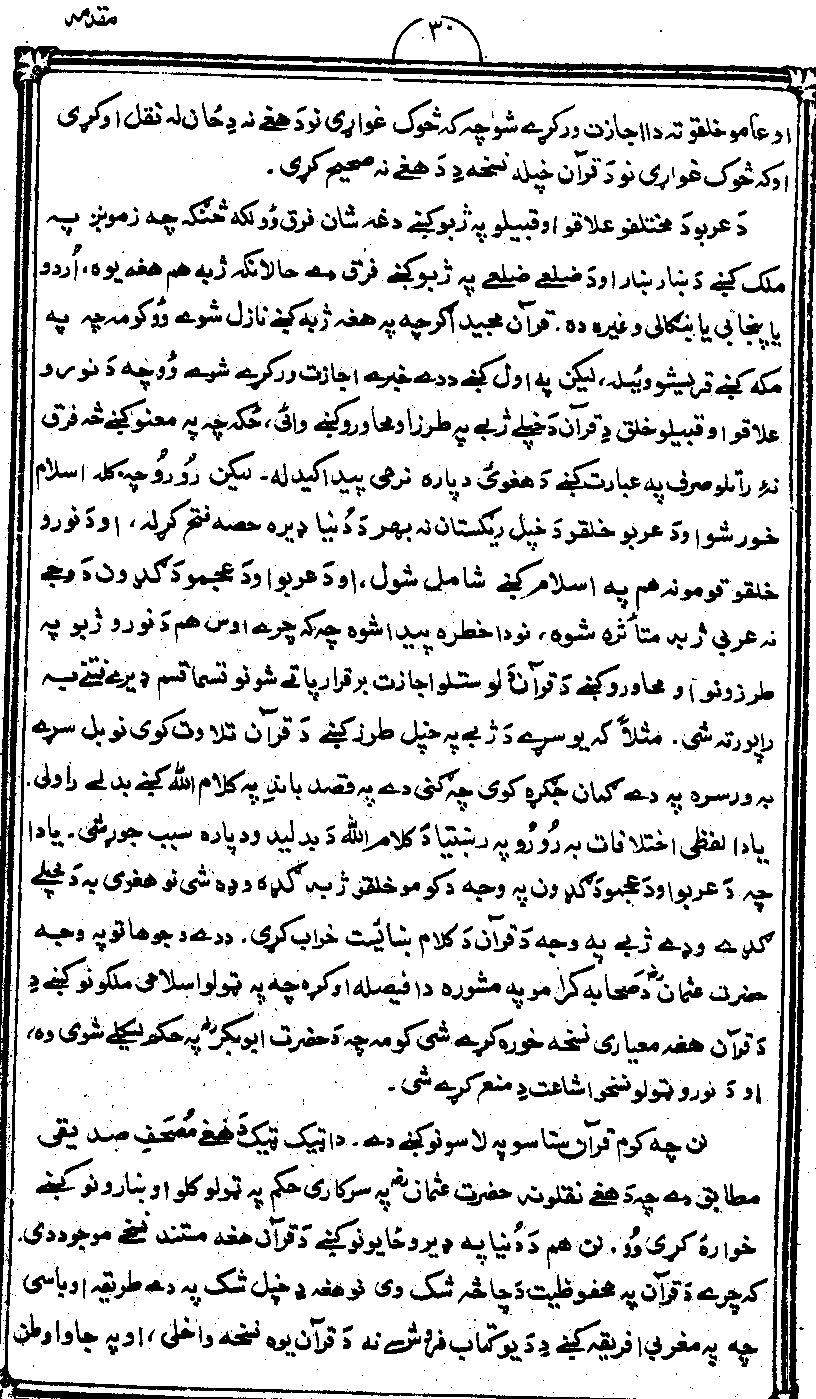 مقدمہ
٣٠
او عامو خلقو ته دا اجازت ورکړے شو چہ کہ څوک غواړی نو د هغے نه دِ ځان له نقل اوکړی
اوکہ څوک غواړی نو د قرآن خپله نسخه دِ د هغے نه صحیح کړی .
د عربو د مختلفو علاقو او قبیلو په ژبو کښے دغه شان فرق وو لکه څنګه چه زمونږ په
ملک کښے د ښار ښار او د ضلعے ضلعے په ژبو کښے فرق دے حالانکہ ژبه هم هغه یوه، اُردو
یا پنجابی یا بنګالی وغیره ده. قرآن مجید اګرچه په هغه ژبه کښے نازل شوے وو کومه چه په
مکه کښے قریشو وئیله، لیکن په اول کښے ددے خبرے اجازت ورکړے شوے وو چه د نورو
علاقو او قبیلو خلق دِ قرآن د خپلے ژبے په طرز او محاورو کښے وائی، ځکه چه په معنو کښے څه فرق
نه راتلو صرف په عبارت کښے د هغوی دپاره نرمی پیدا کیدله۔ لیکن رُو رُو چه کله اسلام
خور شو او د عربو خلقو د خپل ریګستان نه بهر د دُنیا ډیره حصه فتح کړله، او د نورو
خلقو قومونه هم په اسلام کښے شامل شول، او د عربو او د عجمو د ګډون د وجے
نه عربی ژبه متأثره شوه، نو دا خطره پیدا شوه چه که چرے اوس هم د نورو ژبو په
طرزونو او محاورو کښے د قرآن د لوستلو اجازت برقرار پاتے شو نو قسما قسم ډیرے فتنے به
راپورته شی. مثلاً که یو سړے د ژبے په خپل طرز کښے د قرآن تلاوت کوی نو بل سړے
به ورسره په دے ګمان جګړه کوی چه ګنی دے په قصد باندِ په کلام الله کښے بدلے راولی.
یا دا لفظی اختلافات به رُو رُو په رښتیا د کلام الله د بدلیدو دپاره سبب جوړ شی. یا دا
چه د عربو او د عجمو د ګډون په وجه د کومو خلقو ژبه ګډه وډه شی نو هغوی به د خپلے
ګډے وډے ژبے په وجه د قرآن د کلام ښائیست خراب کړی. ددے وجوهاتو په وجه
حضرت عثمانؓ د صحابه کرامو په مشوره دا فیصله اوکړه چه په ټولو اسلامی ملکونو کښے دِ
د قرآن هغه معیاری نسخه خوره کړے شی کومه چه د حضرت ابوبکرؓ په حکم لیکلے شوی وه،
او د نورو ټولو نسخو اشاعت دِ منع کړے شی.
نن چه کوم قرآن ستاسو په لاسونو کښے دے. دا ټیک ټیک د هغے مُصحَفِ صدیقی
مطابق دے چه د هغے نقلونه حضرت عثمانؓ په سرکاری حکم په ټولو کلو او ښارونو کښے
خواره کړی وو. نن هم د دُنیا په ډیرو ځایونو کښے د قرآن هغه مستند نسخے موجود دی.
که چرے د قرآن په محفوظیت د چا څه شک وی نو هغه دِ خپل شک په دے طریقه اوباسی
چه په مغربی افریقه کښے دِ د یو کتاب فروش نه د قرآن یوه نسخه واخلی، او په جاوا وطن